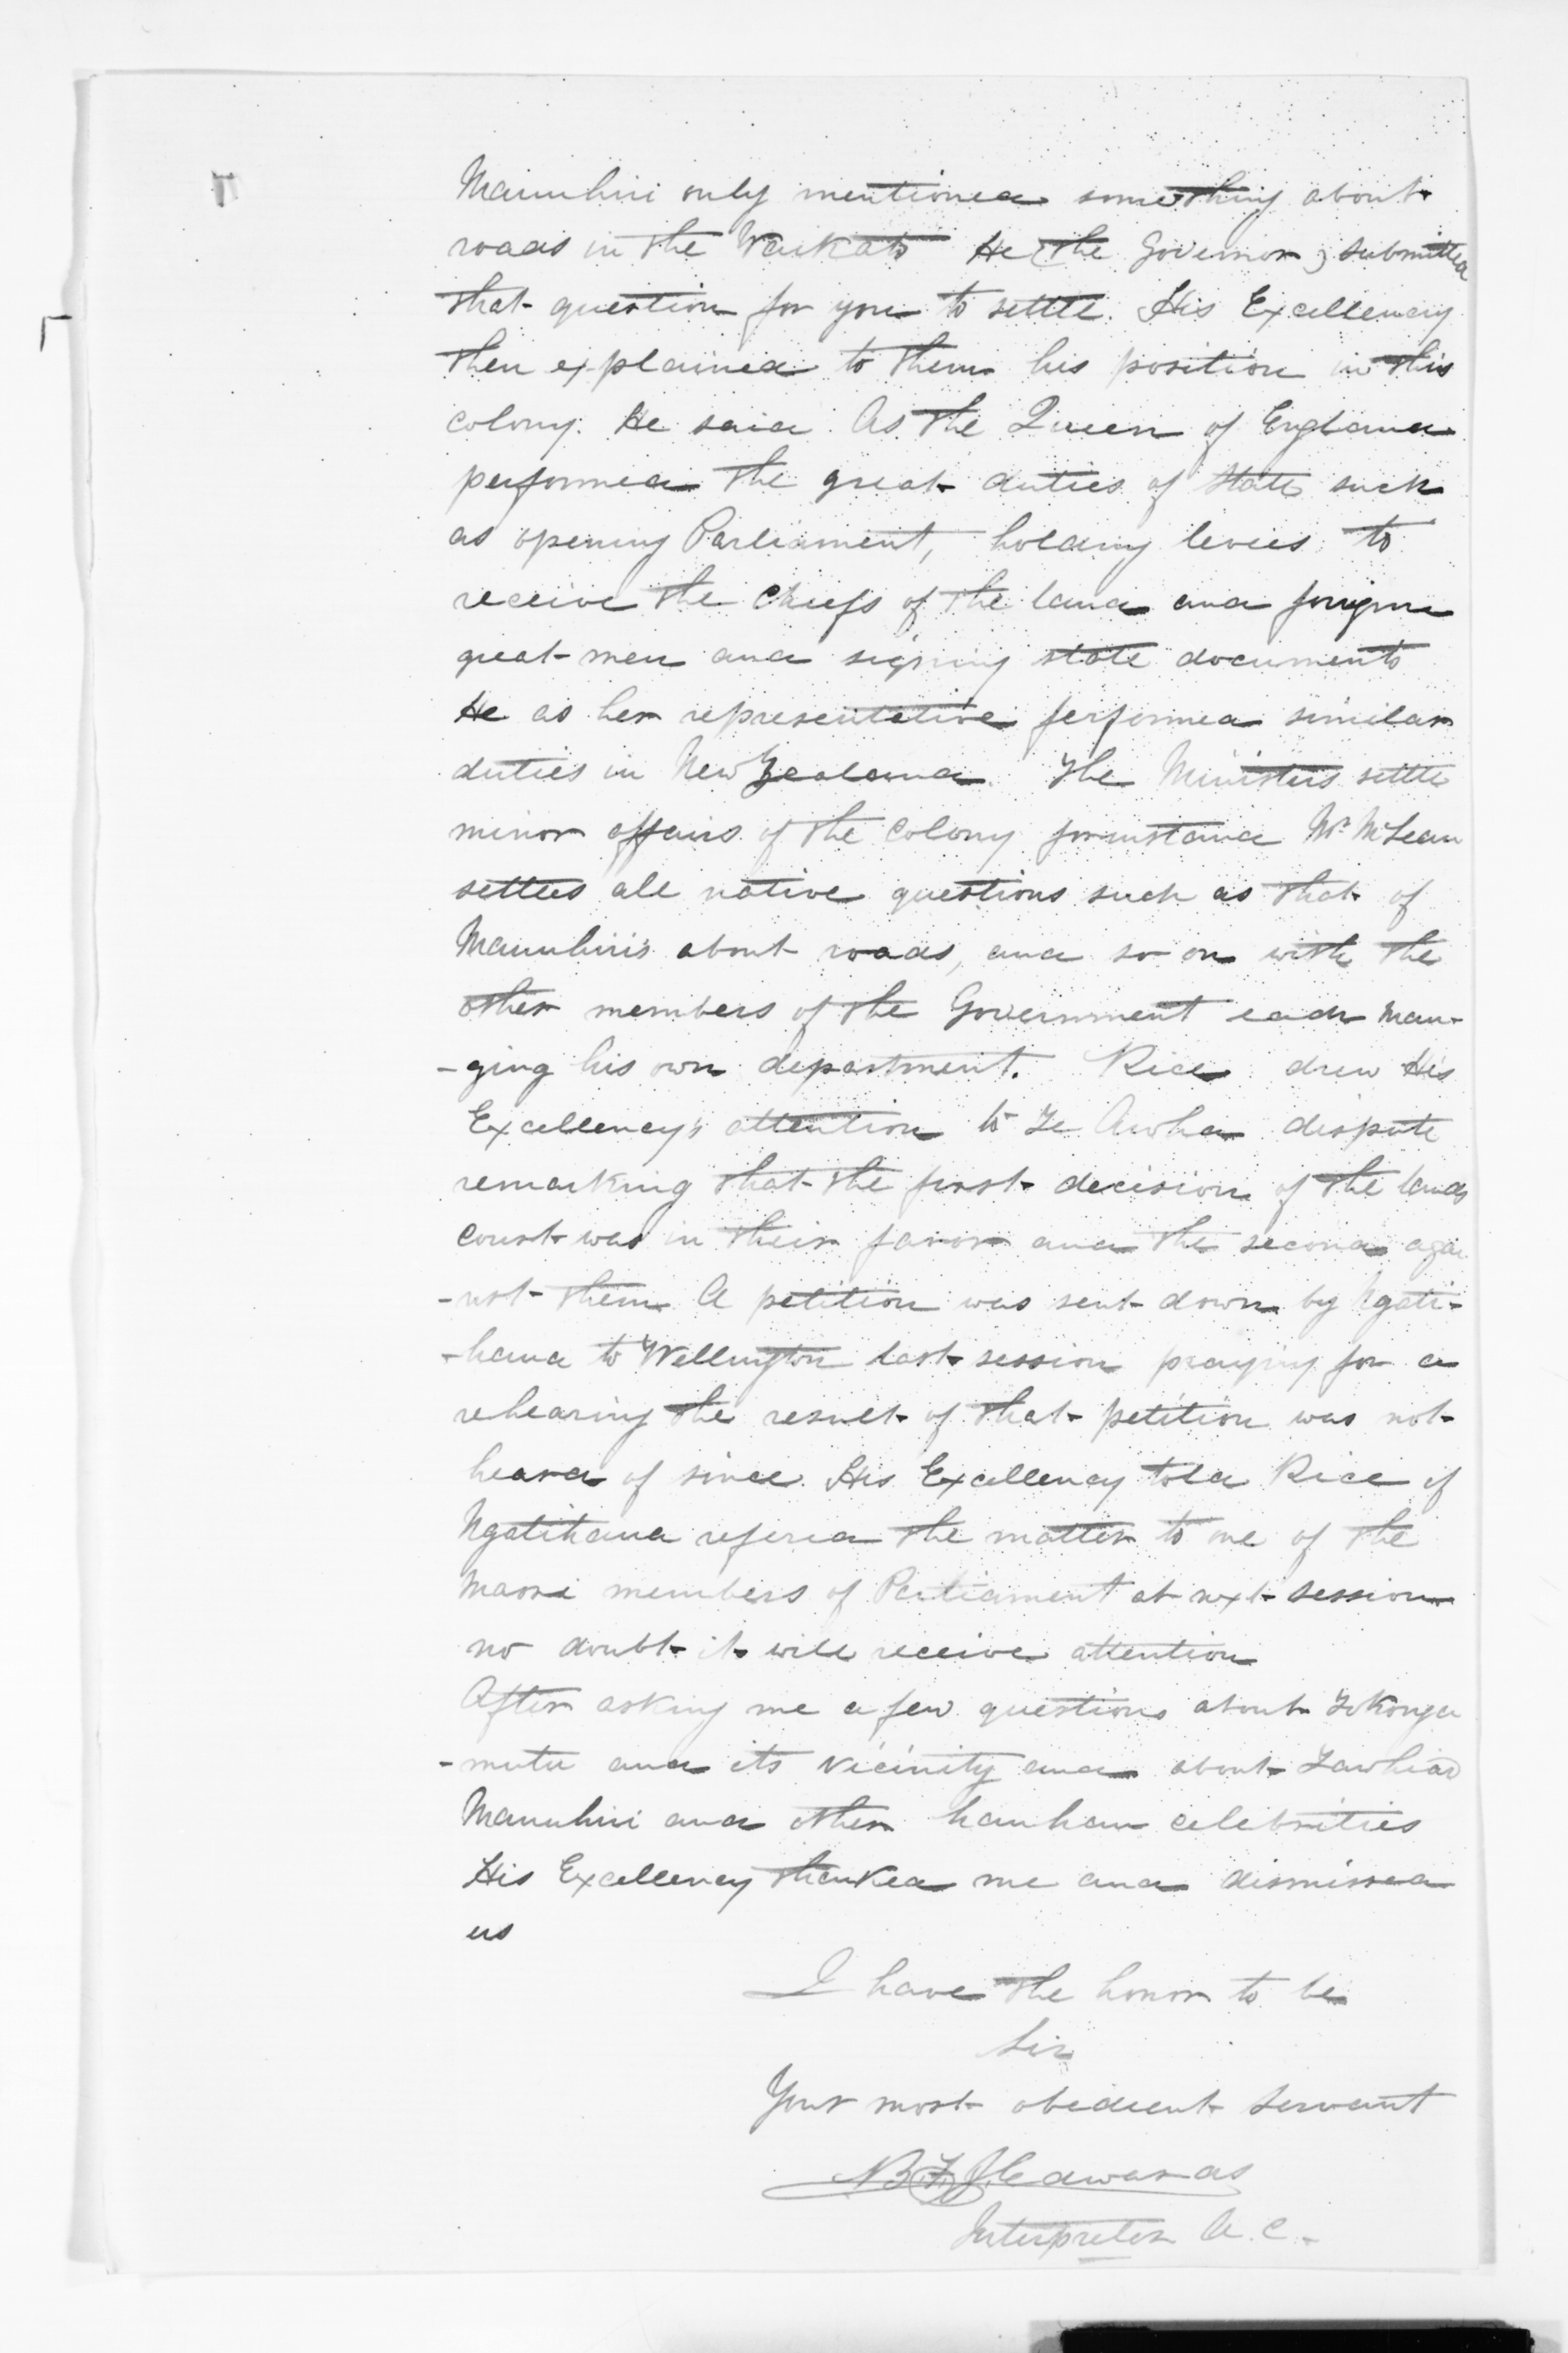 Manuhiri only mentioned something about
roads in the Waikato He (the Governor) submitted
that question for you to settle. His Excellency
then explained to them his position in this
colony. He said. As the Queen of England
performed the great duties of state such
as opening Parliament, holding levees to
receive the chiefs of the land and foreign
great men and signing state documents
He as her representative performed similar
duties in New Zealand. The Ministers settle
minor affairs of the colony for instance Mr. McLean
settles all native questions such as that of
Manuhiri's about roads, and so on with the
other members of the Government each man-
-ging his own department. Rice drew His
Excellency's attention to Te Awha dispute
remarking that the first decision of the lands
court was in their favor and the second agai
-nst them A petition was sent down by Ngati-
-haua to Wellington last session praying for a
rehearing the result of that petition was not
heard of since. His Excellency told Rice if
Ngatihaua refered the matter to one of the
Maori members of Parliament at next session
no doubt it will receive attention
After asking me a few questions about Tokonga
-mutu and its vicinity and about Tawhiao
Manuhiri and other hauhau celebrities
His Excellency thanked me and dismissed
us
I have the honor to be
Sir
Your most obedient servant
N B F J Edwards
Interpreter A.C.